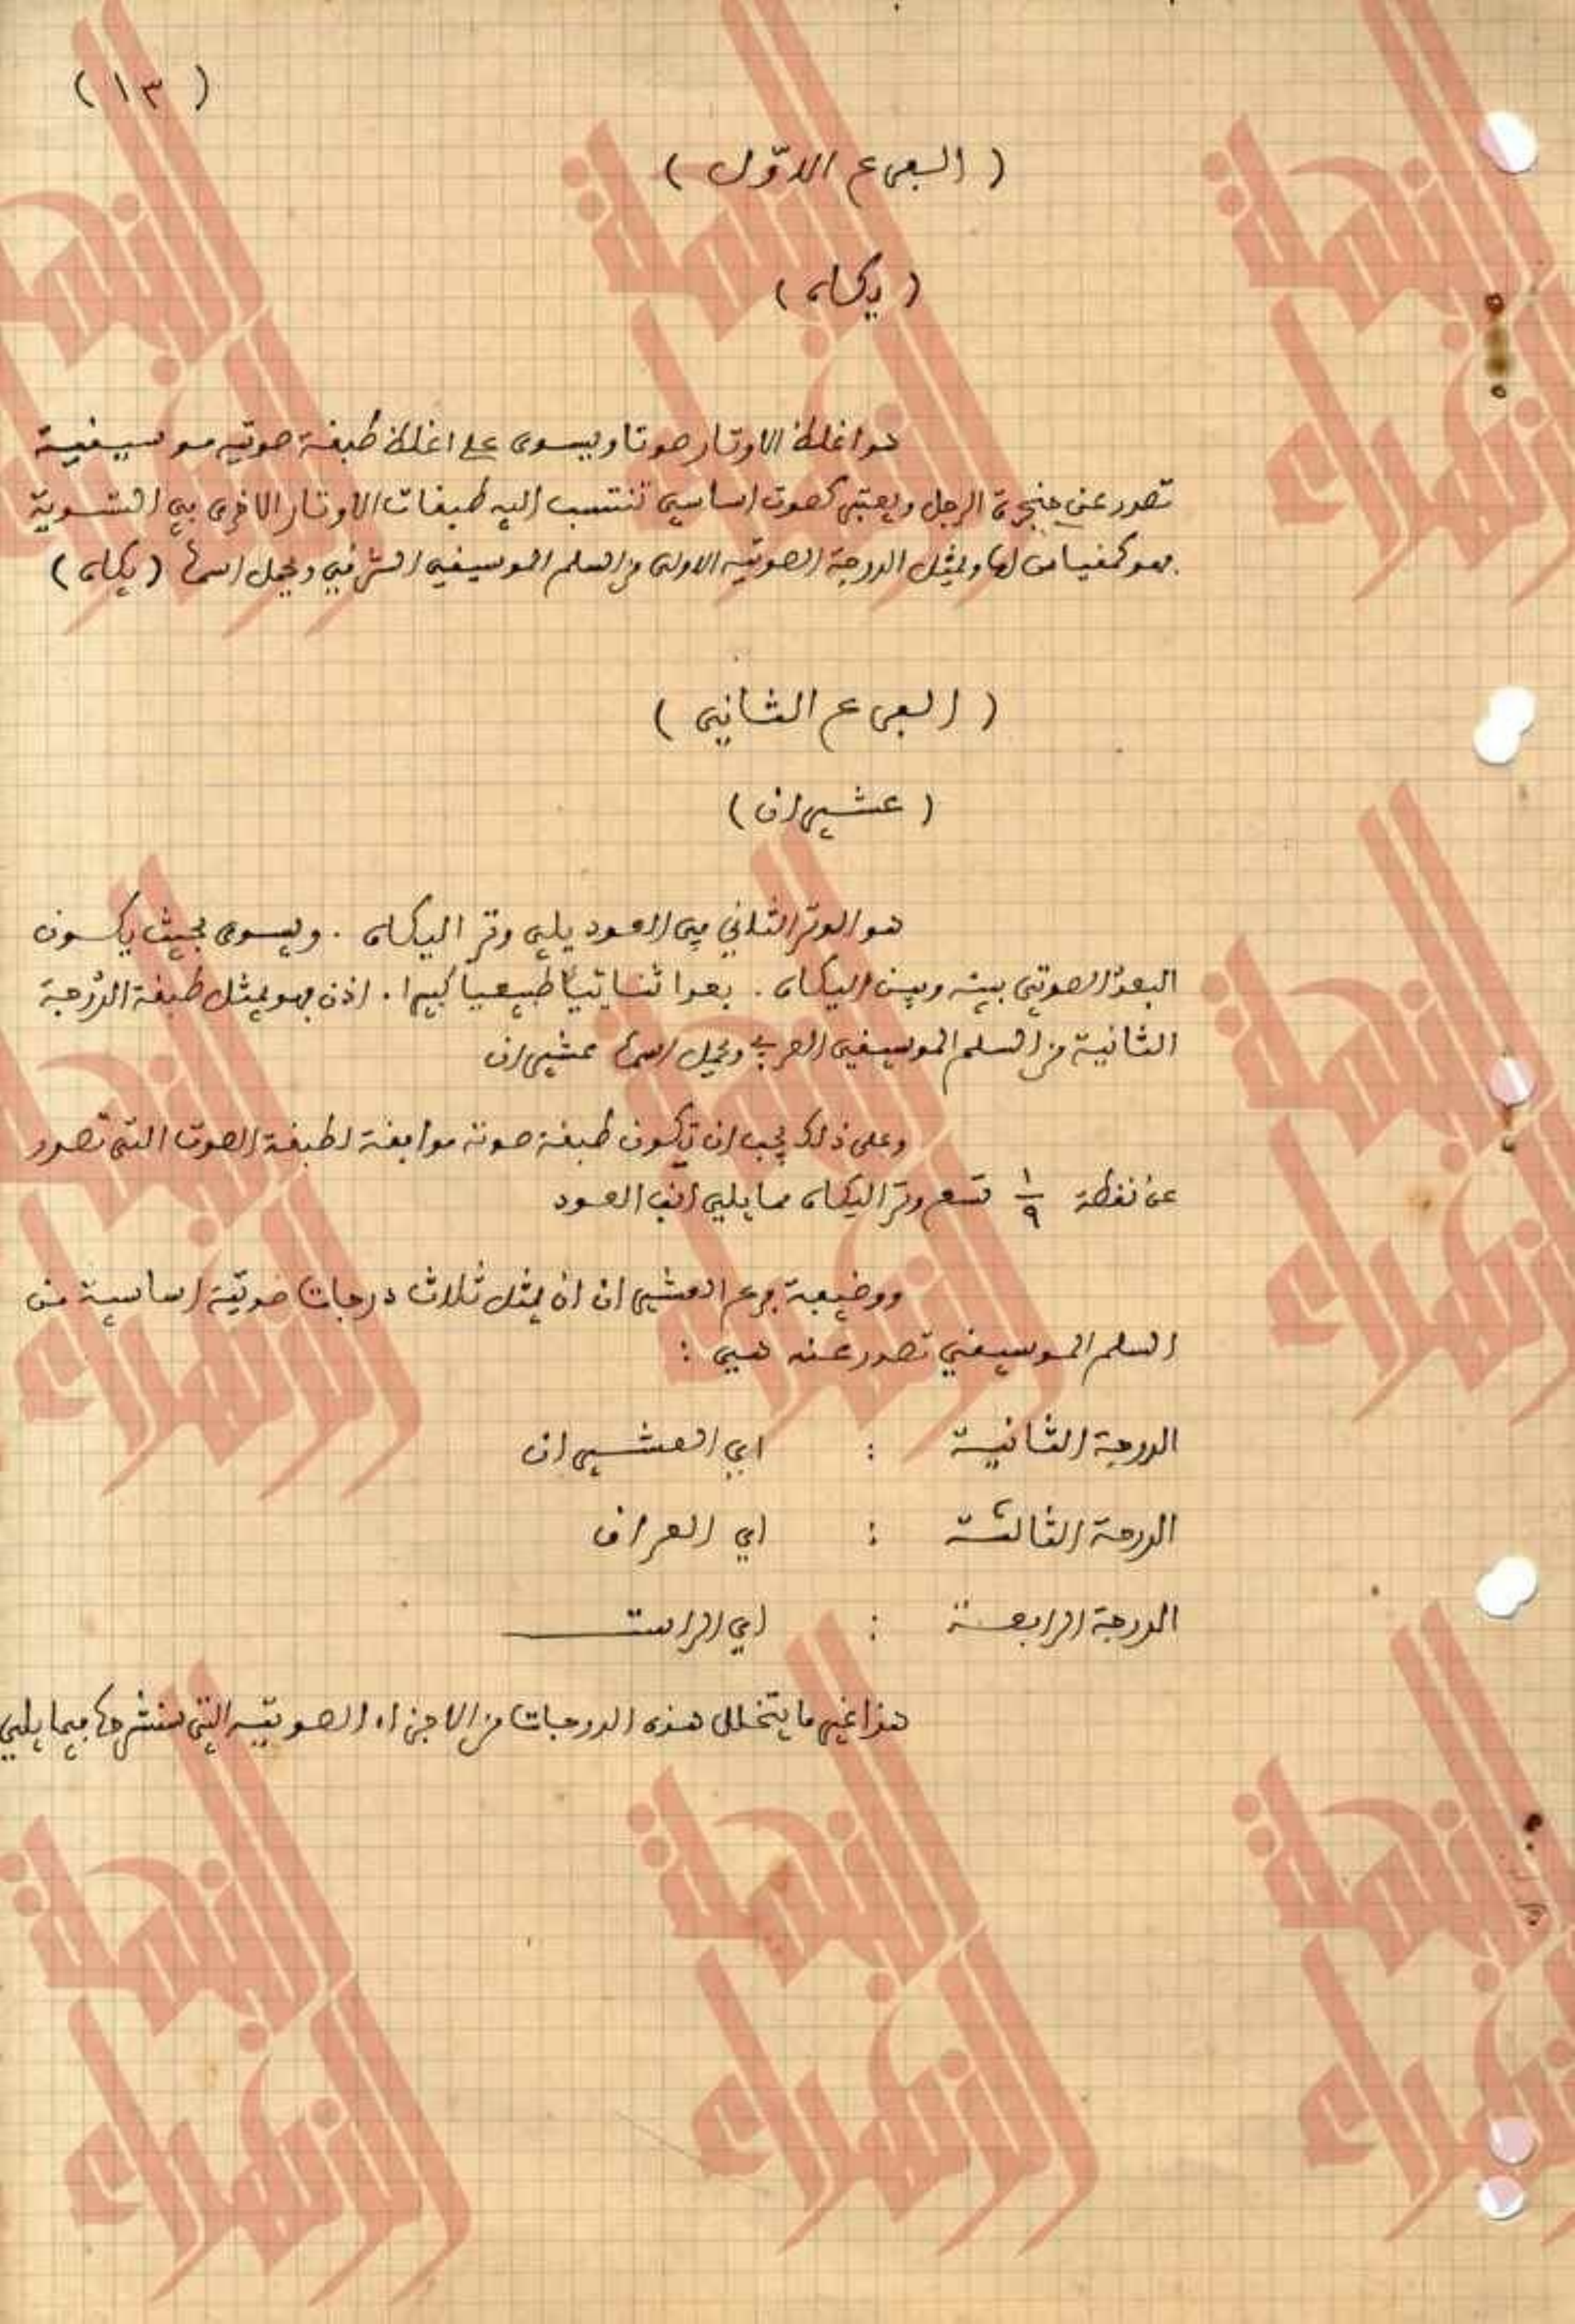 ( ١٣ )
( الفرع الاوّل )
( يكاه )
هو اغلظ الاوتار صوتا ويسوى على اغلظ طبقة صوتيه موسيقية
تصدر عن حنجرة الرجل ويعتبر كصوت اساسي تنتسب اليه طبقات الاوتار الاخرى في التسوية
فهو كمقياس لها ويمثل الدرجة الصوتيه الاولى من السلم الموسيقي الشرقي ويحمل اسمها ( يكاه )
( الفرع الثاني )
( عشيران )
هو الوتر الثاني في العود يلي وتر اليكاه . ويسوى بحيث يكون
البعد الصوتي بينه وبين اليكاه . بعدا ثنائيا طبيعيا كبيرا . اذن فهو يمثل طبقة الدرجة
الثانية من السلم الموسيقي العربي ويحمل اسمها عشيران
وعلى ذلك يجب ان تكون طبقة صوته موافقة لطبقة الصوت التي تصدر
عن نقطة ١/٩ تسع وتر اليكاه مما يلي انف العود
ووضيعة فرع العشيران ان يمثل ثلاث درجات صوتية اساسية من
السلم الموسيقي تصدر عنه هي :
الدرجة الثانية : اي العشيران
الدرجة الثالثة : اي العراق
الدرجة الرابعة : اي الراست
هذا غير ما يتخلل هذه الدرجات من الاجزاء الصوتيه التي سنشرحها فيما يلي
النهلة
الزهراء